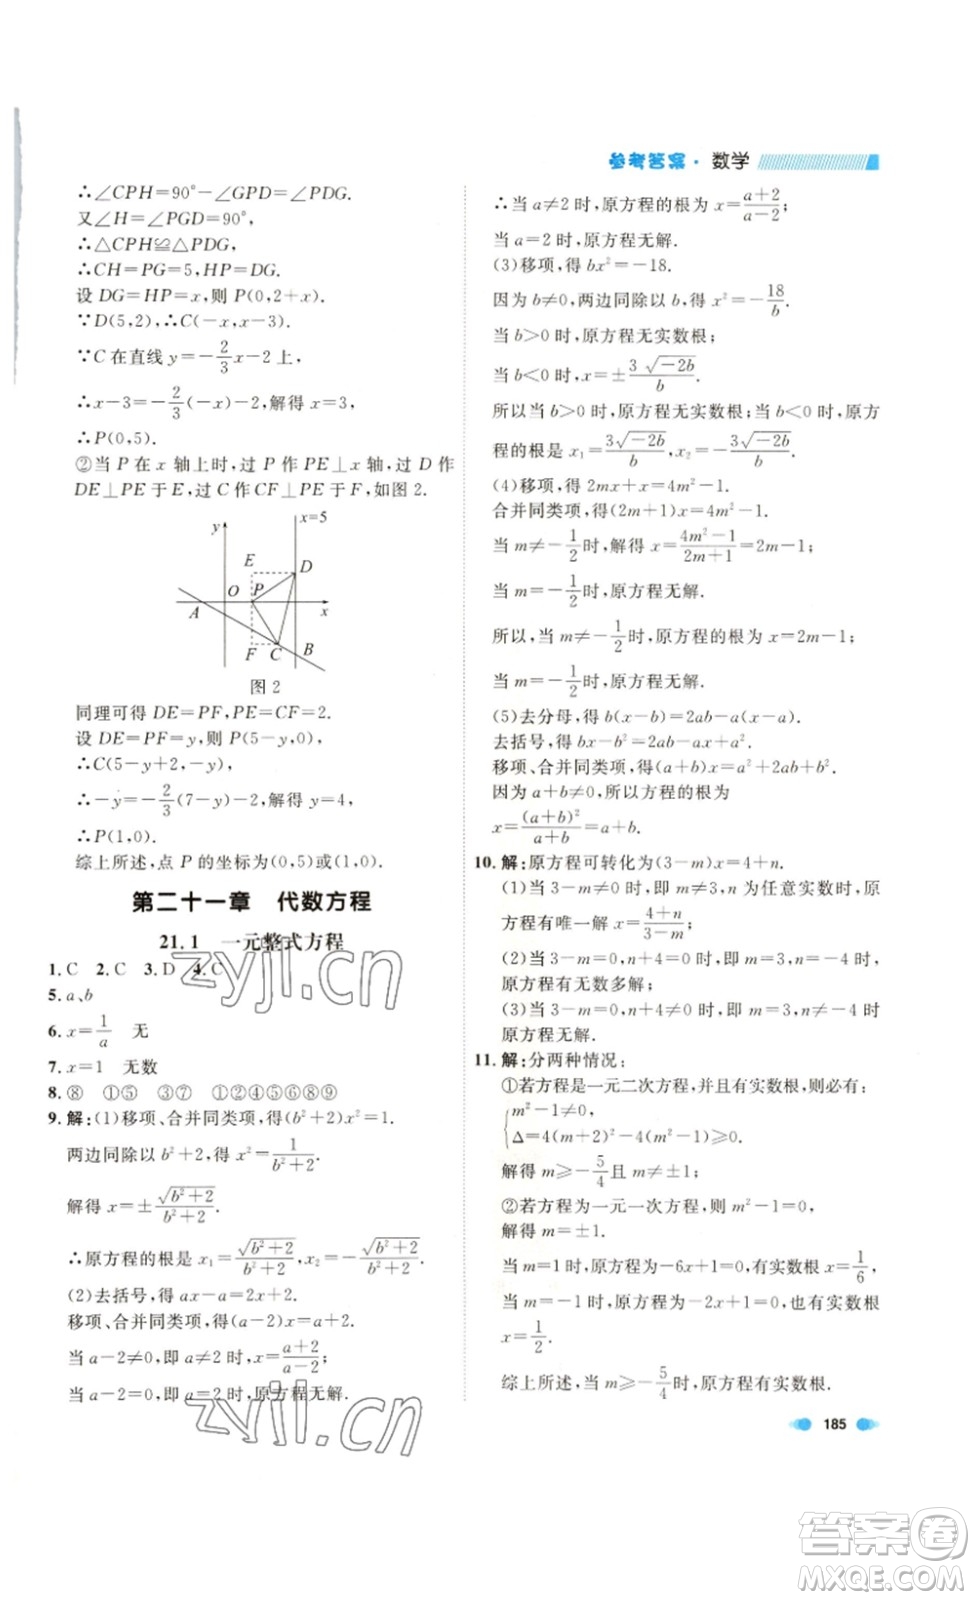 参考答案·数学
∴∠CPH=90°-∠GPD=∠PDG.
又∠H=∠PGD=90°,
∴△CPH≌△PDG,
∴CH=PG=5,HP=DG.
设 DG=HP=x,则 P(0,2+x).
∵D(5,2),∴C(-x,x-3).
∵C 在直线 y=-2/3x-2 上,
∴x-3=-2/3(-x)-2,解得 x=3,
∴P(0,5).
②当 P 在 x 轴上时,过 P 作 PE⊥x 轴,过 D 作
DE⊥PE于 E,过 C 作 CF⊥PE于 F,如图 2.
y x=5
E D
A O P x
F C B
图 2
同理可得 DE=PF,PE=CF=2.
设 DE=PF=y,则 P(5-y,0);
∴C(5-y+2,-y),
∴-y=-2/3(7-y)-2,解得 y=4,
∴P(1,0).
综上所述,点 P 的坐标为(0,5)或(1,0).
第二十一章 代数方程
21.1 一元整式方程
1.C 2.C 3.D 4.C
5.a、b
6.x=1/a 无
7.x=1 无数
8.⑧ ①⑤ ③⑦ ①②④⑤⑥⑧⑨
9.解:(1)移项、合并同类项,得(b²+2)x²=1.
两边同除以 b²+2,得 x²=1/(b²+2).
解得 x=±√(b²+2)/(b²+2)
∴原方程的根是 x₁=√(b²+2)/(b²+2),x₂=-√(b²+2)/(b²+2).
(2)去括号,得 ax-a=2x+2.
移项、合并同类项,得(a-2)x=a+2.
当 a-2≠0,即 a≠2 时,x=(a+2)/(a-2);
当 a-2=0,即 a=2 时,原方程无解.
∴当 a≠2 时,原方程的根为 x=(a+2)/(a-2);
当 a=2 时,原方程无解.
(3)移项,得 bx²=-18.
因为 b≠0,两边同除以 b,得 x²=-18/b.
当 b>0 时,原方程无实数根;
当 b<0 时,x=±3√(-2b)/b.
所以当 b>0 时,原方程无实数根;当 b<0 时,原方
程的根是 x₁=3√(-2b)/b,x₂=-3√(-2b)/b.
(4)移项,得 2mx+x=4m²-1.
合并同类项,得(2m+1)x=4m²-1.
当 m≠-1/2时,解得 x=(4m²-1)/(2m+1)=2m-1;
当 m=-1/2时,原方程无解.
所以,当 m≠-1/2时,原方程的根为 x=2m-1;
当 m=-1/2时,原方程无解.
(5)去分母,得 b(x-b)=2ab-a(x-a).
去括号,得 bx-b²=2ab-ax+a².
移项、合并同类项,得(a+b)x=a²+2ab+b².
因为 a+b≠0,所以方程的根为
x=(a+b)²/(a+b)=a+b.
10.解:原方程可转化为(3-m)x=4+n.
(1)当 3-m≠0时,即 m≠3,n 为任意实数时,原
方程有唯一解 x=(4+n)/(3-m);
(2)当 3-m=0,4+n=0时,即 m=3,n=-4时,
原方程有无数多解;
(3)当 3-m=0,4+n≠0时,即 m=3,n≠-4时,
原方程无解.
11.解:分两种情况:
①若方程是一元二次方程,并且有实数根,则必有:
{m²-1≠0,
Δ=4(m+2)²-4(m²-1)≥0.
解得 m≥-5/4且 m≠±1;
②若方程为一元一次方程,则 m²-1=0,
解得 m=±1.
当 m=1时,原方程为-6x+1=0,有实数根 x=1/6,
当 m=-1时,原方程为-2x+1=0,也有实数根
x=1/2.
综上所述,当 m≥-5/4时,原方程有实数根.
185
zyjl.cn
zyjl.cn
答案卷
MXQE.COM